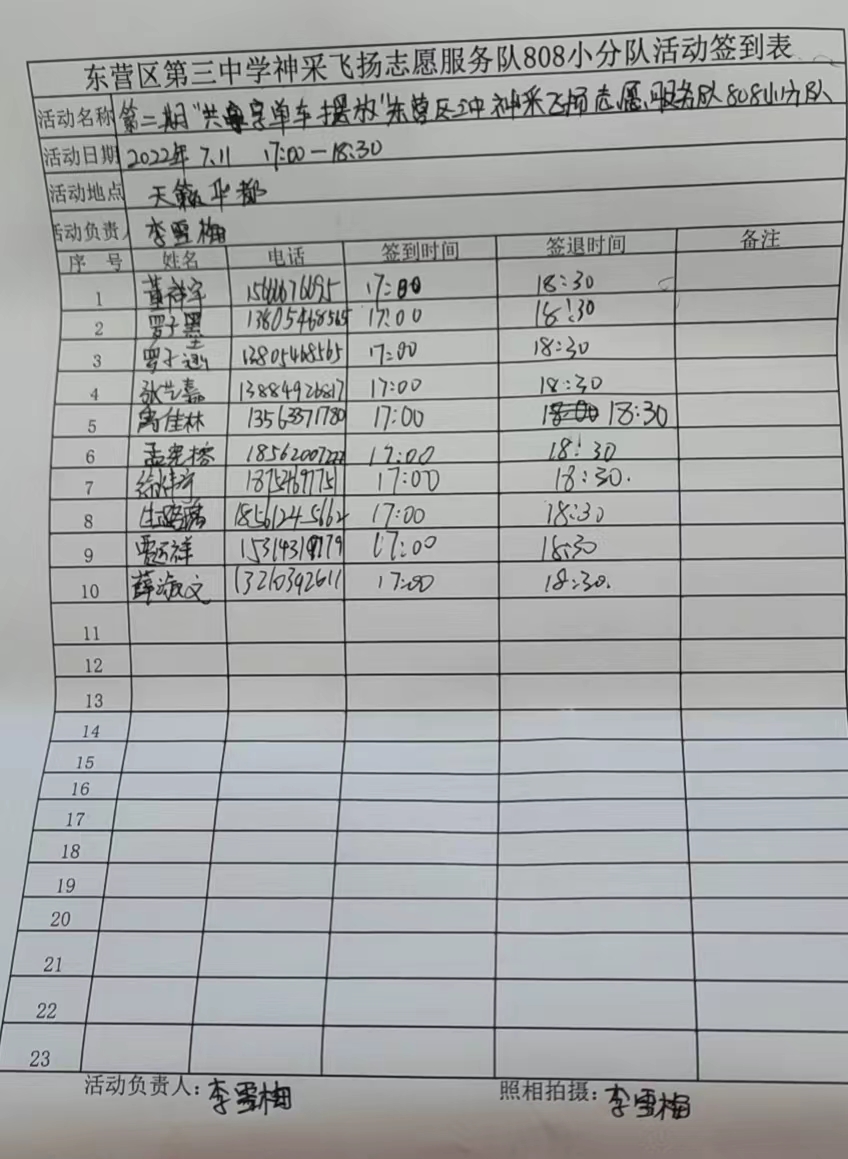 东营区第三中学神采飞扬志愿服务队808小分队活动签到表
活动名称 第二期"共享单车摆放"东营区三中神采飞扬志愿服务队808小分队
活动日期 2022年 7.11 17:00—18:30
活动地点 天 华都
活动负责人 李雪梅
序 号 姓名 电话 签到时间 签退时间 备注
1 董祥宇 17:00 18:30
2 罗子墨 13805468565 17:00 18:30
3 罗子 13805468565 17:00 18:30
4 张艺嘉 13884926817 17:00 18:30
5 佳林 13563371780 17:00 18:30
6 孟宪榕 18562007222 17:00 18:30
7 徐 17:00 18:30.
8 17:00 18:30
9 贾 祥 17:00 18:30
10 薛淑文 13210392611 17:00 18:30.
11
12
13
14
15
16
17
18
19
20
21
22
23
活动负责人: 李雪梅 照相拍摄: 李雪梅